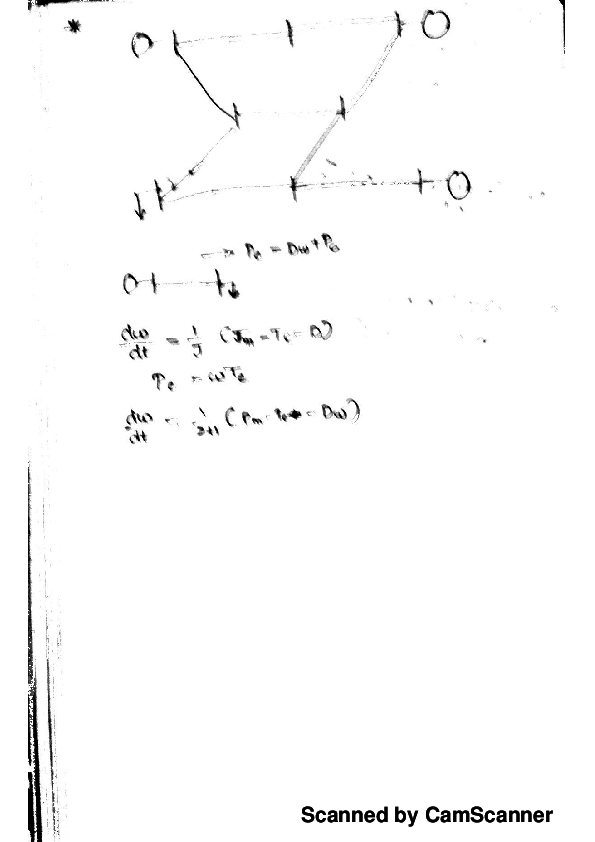 *
→ Pe = Dω + Po
dω/dt = 1/J (Tm - Te - D)
Pe = ωTe
dω/dt = 1/2H (Pm - Pe - Dω)
Scanned by CamScanner